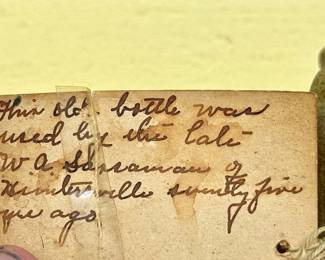 This old bottle was
used by the late
W A Sassaman of
Kintnersville seventy five
yrs ago